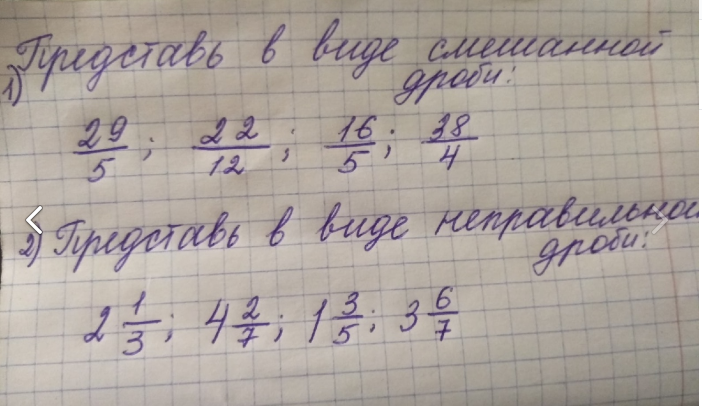 1) Представь в виде смешанной
дроби:
29/5; 22/12; 16/5; 38/4
2) Представь в виде неправильной
дроби:
2 1/3; 4 2/7; 1 3/5; 3 6/7